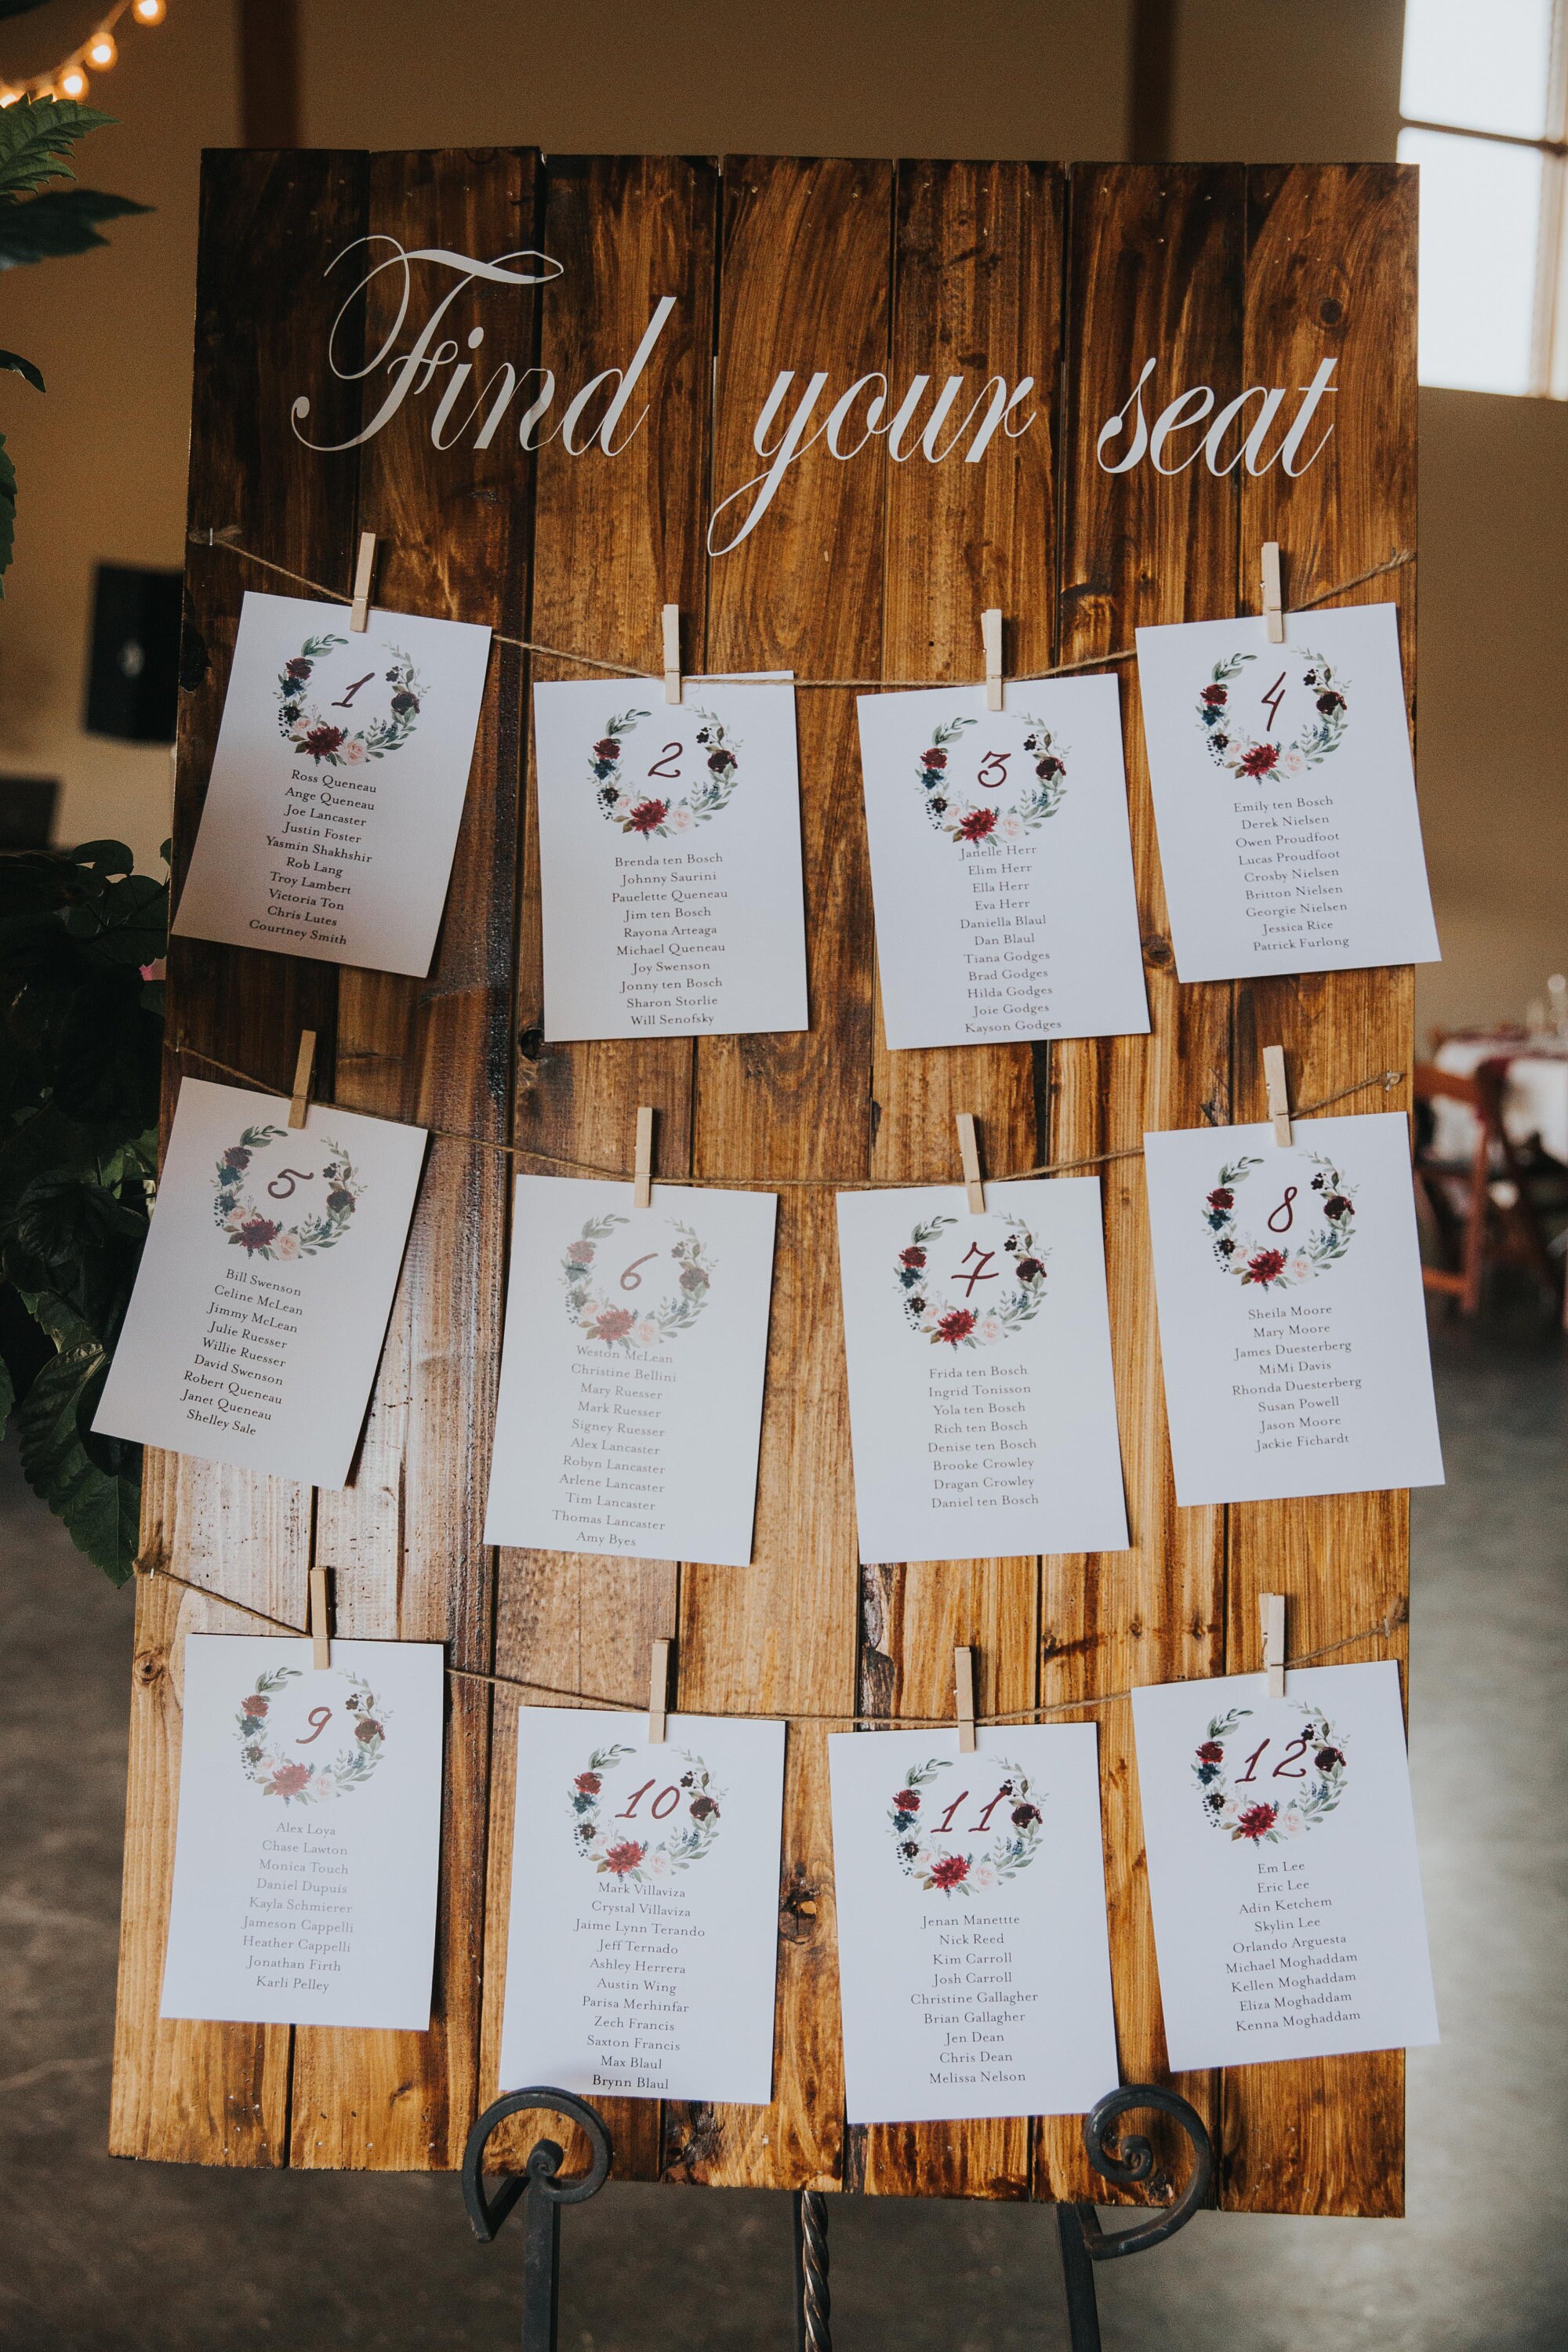 Find your seat
1
Ross Queneau
Ange Queneau
Joe Lancaster
Justin Foster
Yasmin Shakhshir
Rob Lang
Troy Lambert
Victoria Ton
Chris Lutes
Courtney Smith
2
Brenda ten Bosch
Johnny Saurini
Paulette Queneau
Jim ten Bosch
Rayona Arteaga
Michael Queneau
Joy Swenson
Jonny ten Bosch
Sharon Storlie
Will Senofsky
3
Janelle Herr
Elim Herr
Ella Herr
Eva Herr
Daniella Blaul
Dan Blaul
Tiana Godges
Brad Godges
Hilda Godges
Joie Godges
Kayson Godges
4
Emily ten Bosch
Derek Nielsen
Owen Proudfoot
Lucas Proudfoot
Crosby Nielsen
Britton Nielsen
Georgie Nielsen
Jessica Rice
Patrick Furlong
5
Bill Swenson
Celine McLean
Jimmy McLean
Julie Ruesser
Willie Ruesser
David Swenson
Robert Queneau
Janet Queneau
Shelley Sale
6
Weston McLean
Christine Bellini
Mary Ruesser
Mark Ruesser
Signey Ruesser
Alex Lancaster
Robyn Lancaster
Arlene Lancaster
Tim Lancaster
Thomas Lancaster
Amy Byes
7
Frida ten Bosch
Ingrid Tonisson
Yola ten Bosch
Rich ten Bosch
Denise ten Bosch
Brooke Crowley
Dragan Crowley
Daniel ten Bosch
8
Sheila Moore
Mary Moore
James Duesterberg
MiMi Davis
Rhonda Duesterberg
Susan Powell
Jason Moore
Jackie Fichardt
9
Alex Loya
Chase Lawton
Monica Touch
Daniel Dupuis
Kayla Schmierer
Jameson Cappelli
Heather Cappelli
Jonathan Firth
Karli Pelley
10
Mark Villaviza
Crystal Villaviza
Jaime Lynn Terando
Jeff Ternado
Ashley Herrera
Austin Wing
Parisa Merhinfar
Zech Francis
Saxton Francis
Max Blaul
Brynn Blaul
11
Jenan Manettte
Nick Reed
Kim Carroll
Josh Carroll
Christine Gallagher
Brian Gallagher
Jen Dean
Chris Dean
Melissa Nelson
12
Em Lee
Eric Lee
Adin Ketchem
Skylin Lee
Orlando Arguesta
Michael Moghaddam
Kellen Moghaddam
Eliza Moghaddam
Kenna Moghaddam